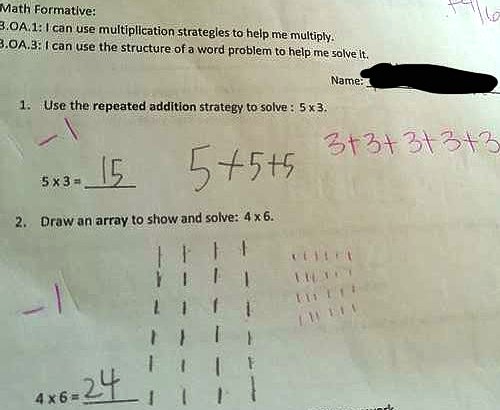 Math Formative:
3.OA.1: I can use multiplication strategies to help me multiply.
3.OA.3: I can use the structure of a word problem to help me solve it.
Name:
1. Use the repeated addition strategy to solve : 5 x 3.
-1
5 x 3 = 15
5+5+5
3+3+3+3+3
2. Draw an array to show and solve: 4 x 6.
-1
4 x 6 = 24